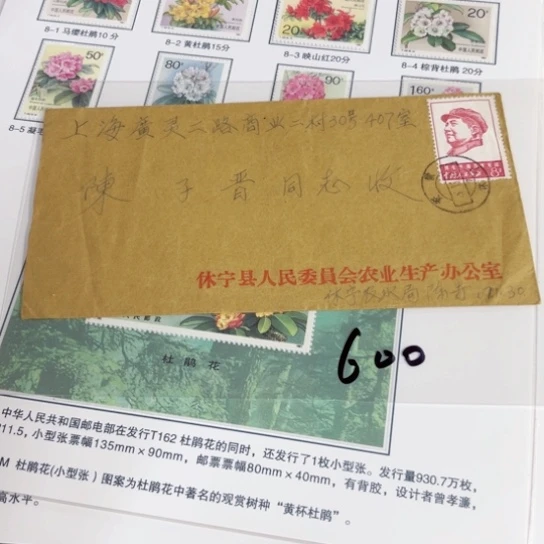 8-1 马缨杜鹃10分
8-2 黄杜鹃15分
8-3 映山红20分
20分
8-4 棕背杜鹃 20分
50分
80分
90
160
8-5
上海广灵二路商业二村30号407室
陳子晋同志收
休宁县人民委员会农业生产办公室
休宁农水局
杜鹃花
600
中华人民共和国邮电部在发行T162 杜鹃花的同时，还发行了1枚小型张。发行量930.7万枚，
P11.5，小型张票幅135mm×90mm，邮票票幅80mm×40mm，有背胶，设计者曾孝濂，
M 杜鹃花(小型张）图案为杜鹃花中著名的观赏树种“黄杯杜鹃”。
高水平。